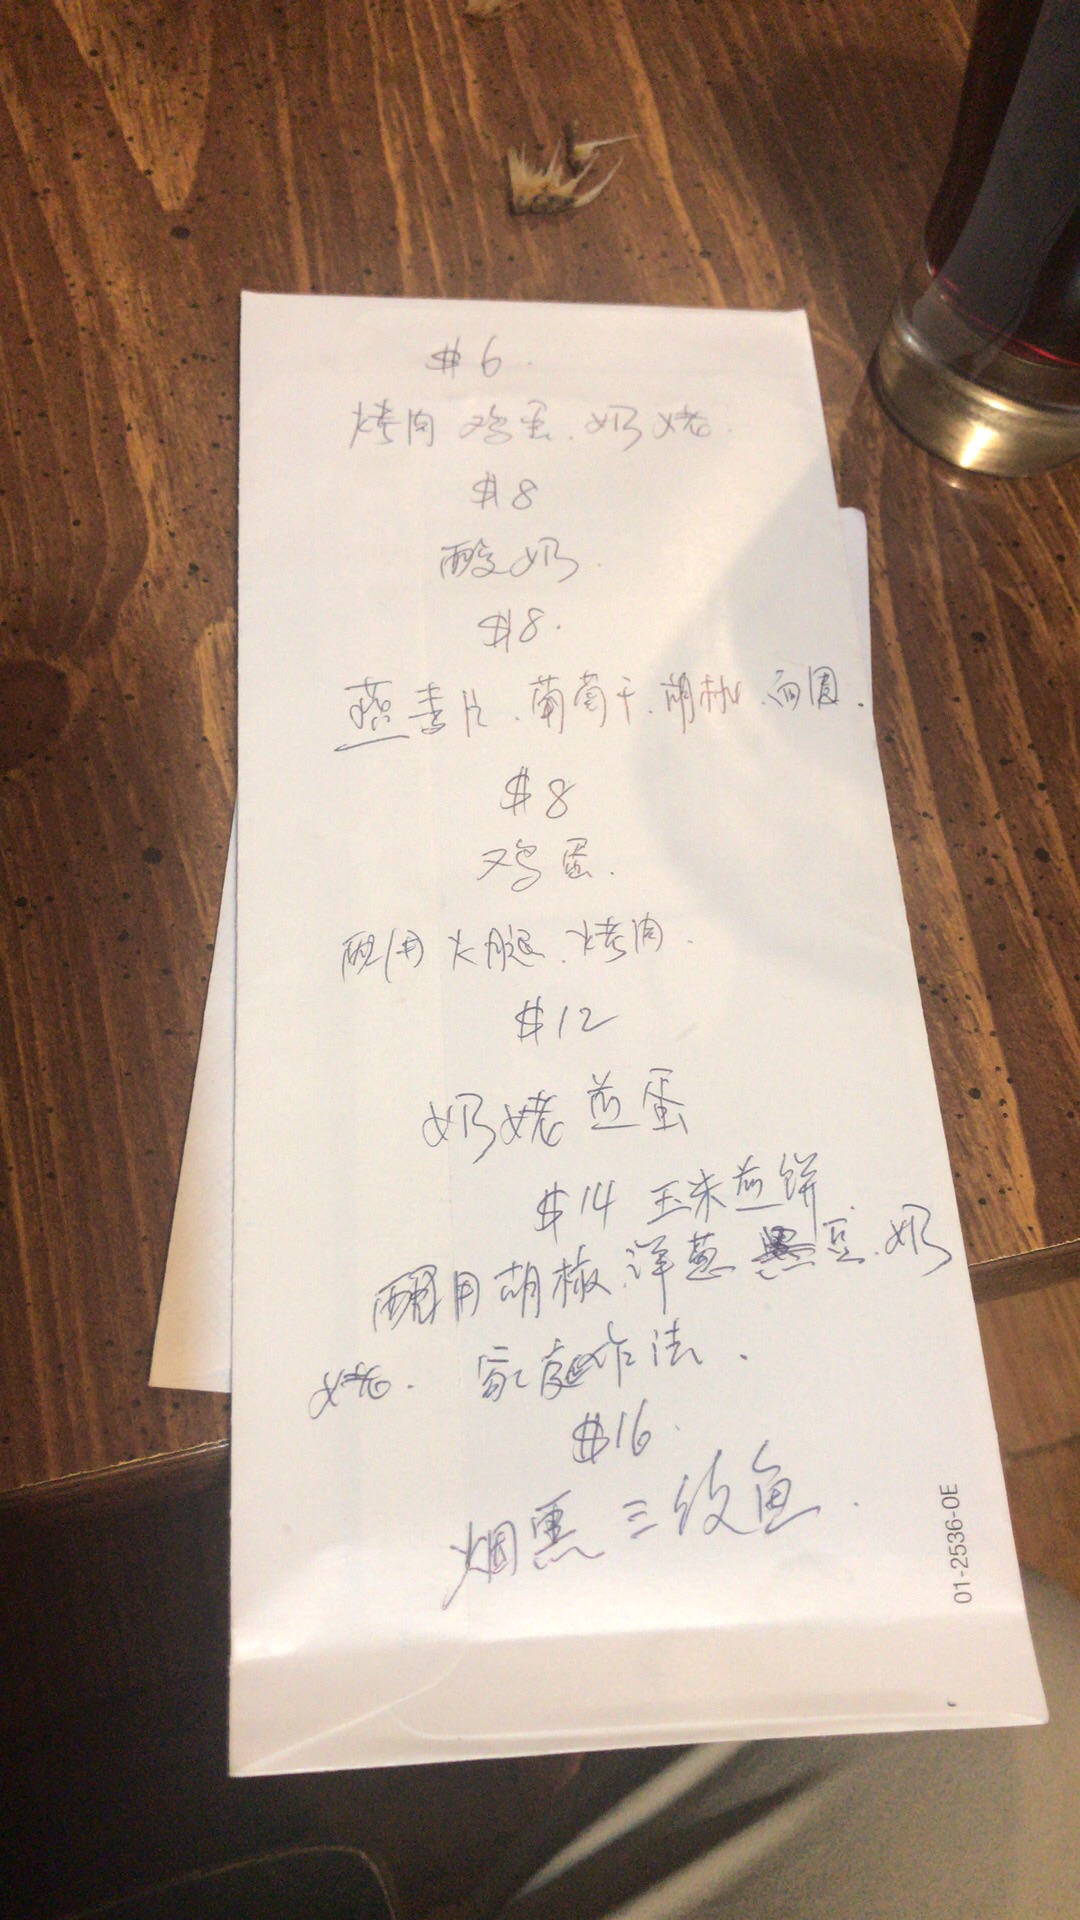 $6.
烤肉 鸡蛋.奶姥.
$8
酸奶.
$8.
燕麦片.葡萄干.胡桃.面圈.
$8
鸡蛋.
配用火腿.烤肉.
$12
奶姥煎蛋
$14 玉米煎饼
配用胡椒.洋葱 黑豆.奶
姥. 家庭作法.
$16.
烟熏三纹鱼.
01-2536-0E